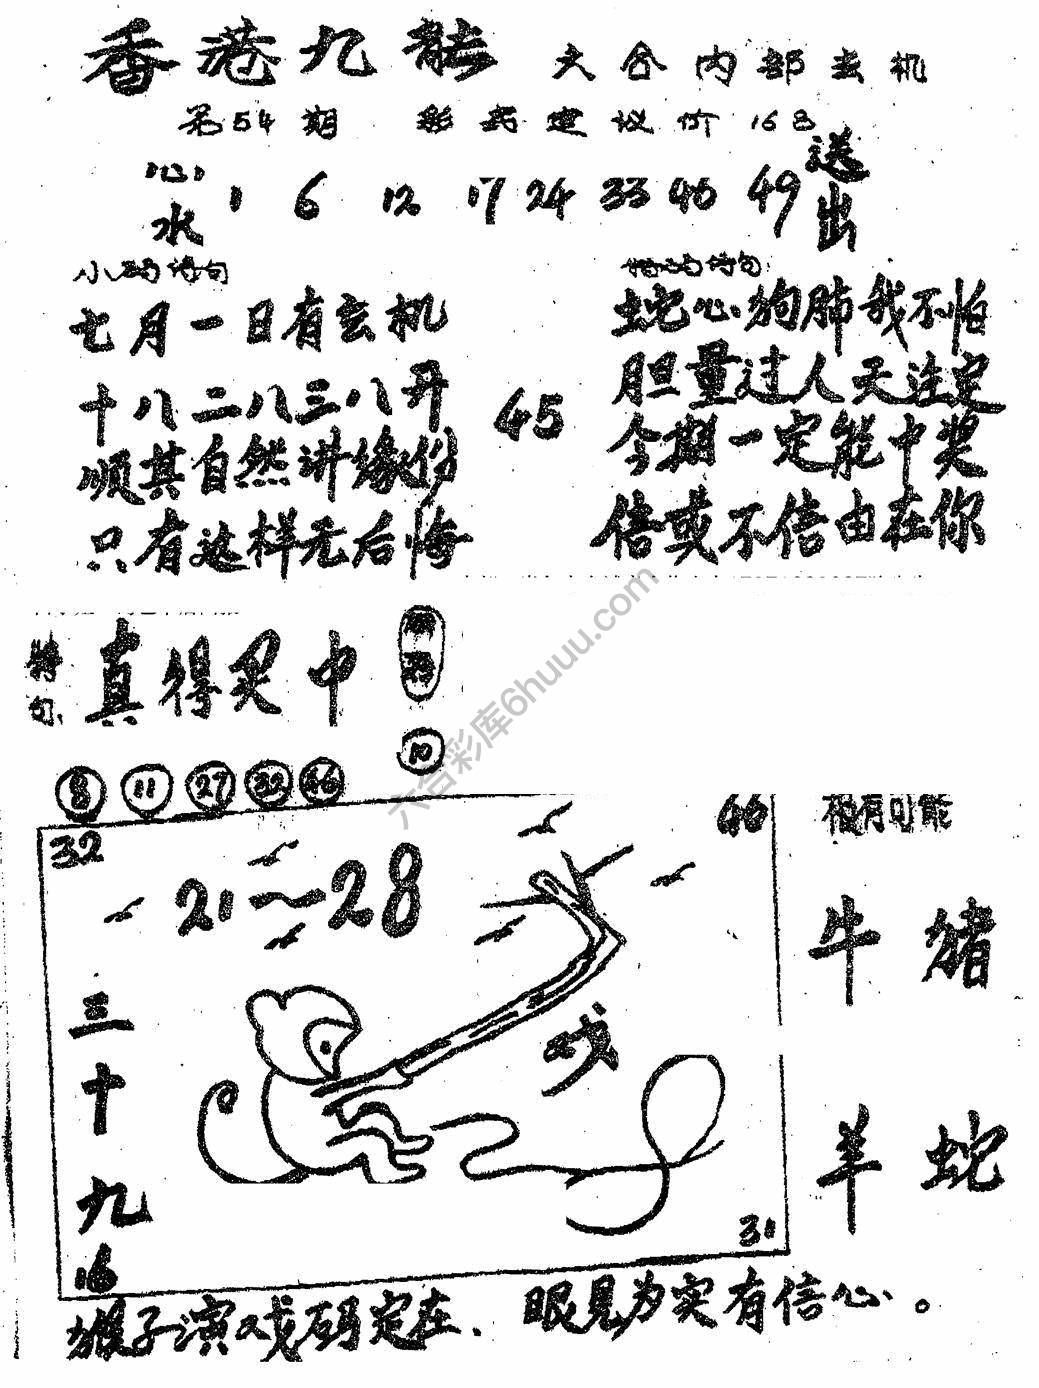 香港九龙 六合内部玄机
第54期 彩票建议价168
心水 1 6 12 17 24 33 46 49 送出
小功诗句
七月一日有玄机
十八二八三八开
顺其自然讲缘份
只有这样无后悔
45
诗句
蛇心狗肺我不怕
胆量过人天注定
今期一定能中奖
信或不信由在你
特句
真得灵中
10
8 11 27 32 46
极有可能
牛 猪
羊 蛇
32
21~28
46
三十九
16
戏
31
猴子演戏码定在、眼见为实有信心。
六合彩库6huuu.com